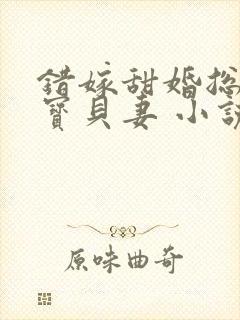 錯嫁甜婚總
寶貝妻 小說
原味曲奇